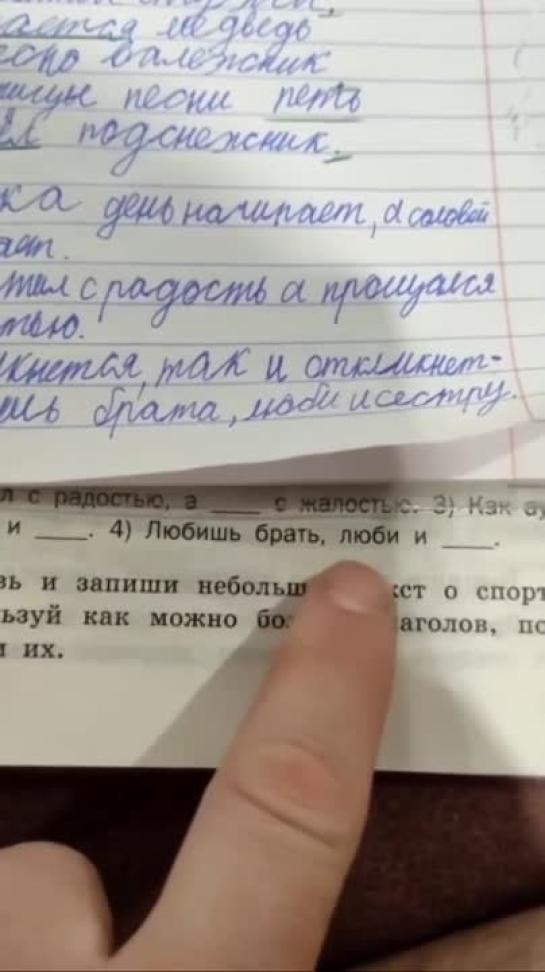 медведь
валежник
песни петь
подснежник.
ка день начинает, а соловей
ает.
тил с радость а прощался
тью.
кнется, так и откликнет-
шь брата, люби и сестру.
л с радостью, а ____ с жалостью. 3) Как ау
и ____. 4) Любишь брать, люби и ____.
зь и запиши небольш кст о спорт
ьзуй как можно бо аголов, по
и их.